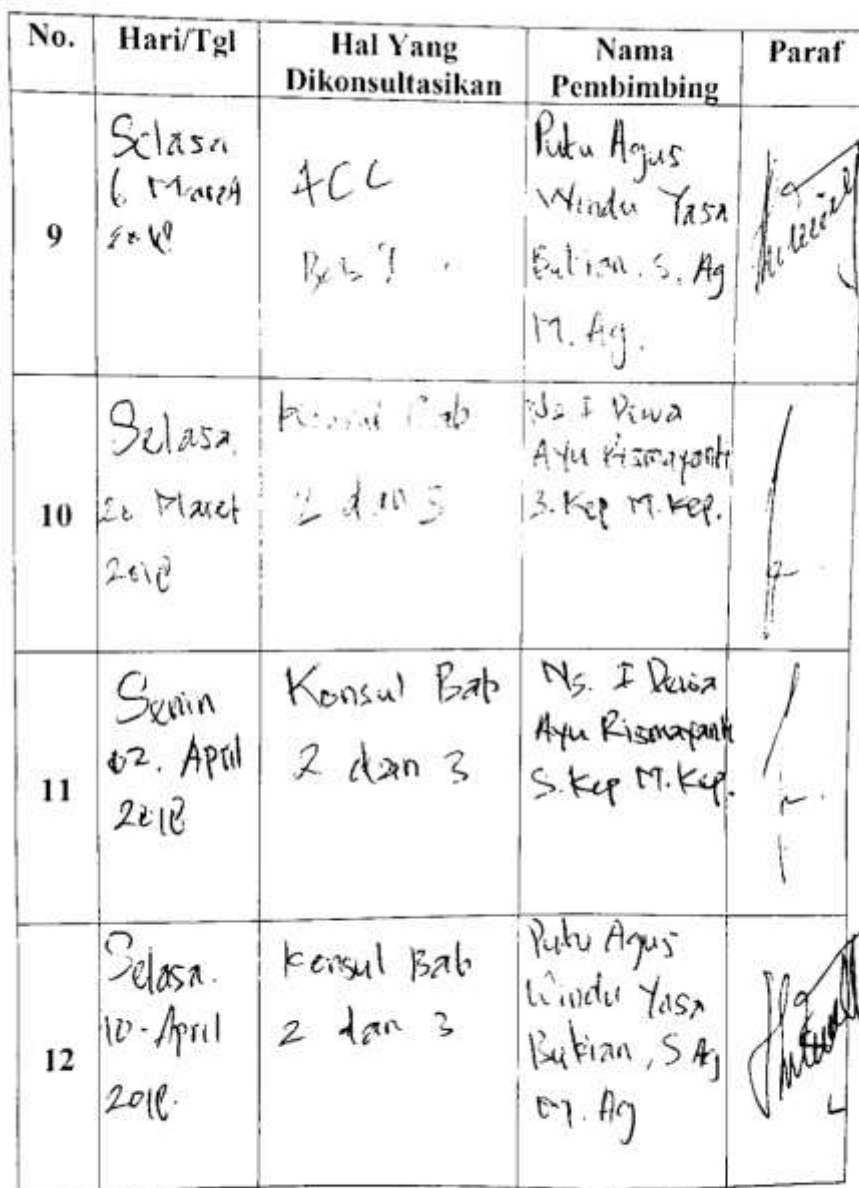 No. Hari/Tgl Hal Yang Dikonsultasikan Nama Pembimbing Paraf
9
Selasa
6 Maret
2018
ACC
Bab
Putu Agus
Windu Yasa
Bukian, S. Ag
M. Ag.
10
Selasa
20 Maret
2018
Konsul Bab
2 dan 3
Ns I Dewa
Ayu Rismayanti
S. Kep M. Kep.
11
Senin
02. April
2018
Konsul Bab
2 dan 3
Ns. I Dewa
Ayu Rismayanti
S. Kep M. Kep.
12
Selasa.
10 - April
2018.
Konsul Bab
2 dan 3
Putu Agus
Windu Yasa
Bukian, S Ag
M. Ag